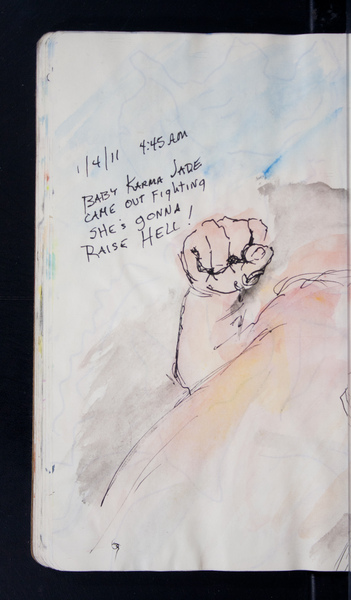 1/4/11 4:45 AM
BABY KARMA JADE
CAME OUT FIGHTING
SHE'S GONNA
RAISE HELL!